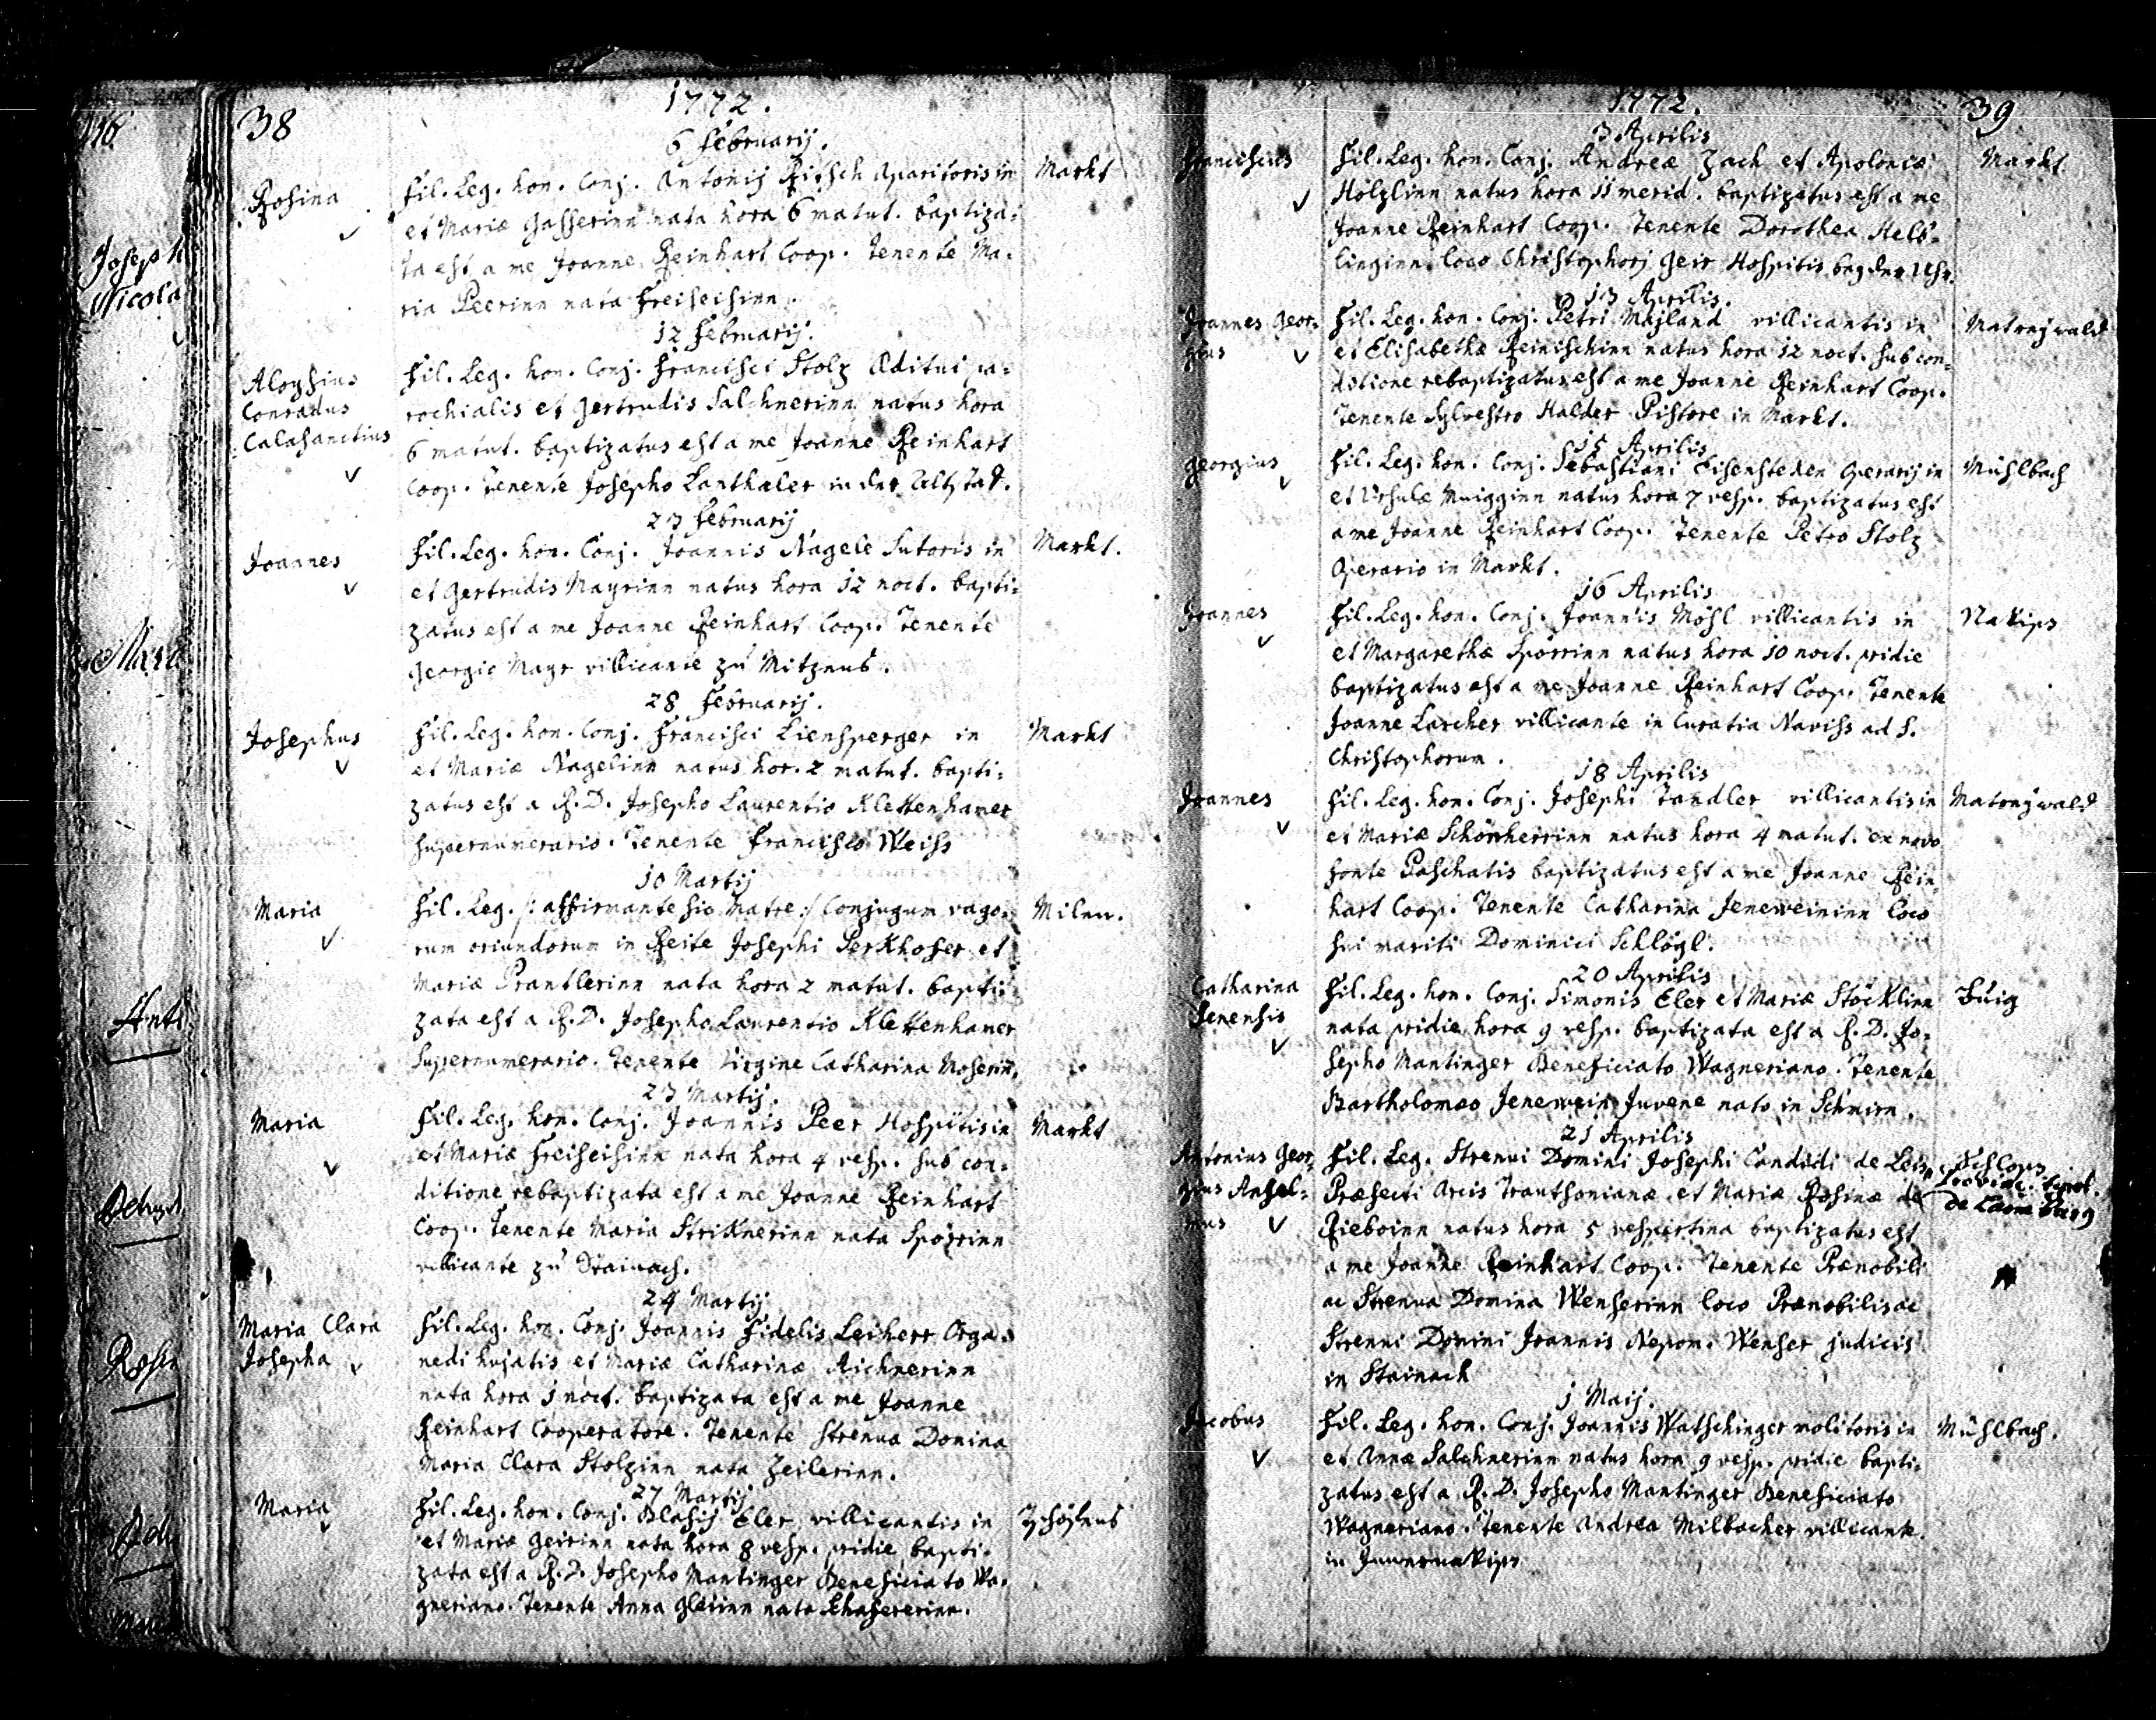 38
1772.
6 Februarij.
Rosina
Fil. Leg. hon. Conj. Antonij Ritsch Aparitoris in
Markt
et Mariæ Gasserinn nata hora 6 matut. baptiza=
ta est a me Joanne Reinhart Coop. Tenente Ma=
ria Peerinn nata Freiseisinn.
12 Februarij.
Aloysius
Conradus
Calasanctius
Fil. Leg. hon. Conj. Francisci Stolz Æditui pa=
rochialis et Gertrudis Salchnerinn natus hora
6 matut. baptizatus est a me Joanne Reinhart
Coop. Tenente Josepho Lanthaler in der Altstadt.
23 Februarij
Joannes
Fil. Leg. hon. Conj. Joannis Nagele Sutoris in
Markt.
et Gertrudis Mayrinn natus hora 12 noct. bapti=
zatus est a me Joanne Reinhart Coop. Tenente
Georgio Mayr villicante zu Mitznus.
28 Februarij.
Josephus
Fil. Leg. hon. Conj. Francisci Liensperger in
Markt
et Mariæ Nagelinn natus hor. 2 matut. bapti=
zatus est a R. D. Josepho Laurentio Klettenhamer
supernumerario. Tenente Francisco Weiss
10 Martij
Maria
Fil. Leg. /: affirmante sic matre :/ Conjugum vago=
Milen.
rum oriundorum in Reite Josephi Perkhofer et
Mariæ Prantlerinn nata hora 2 matut. bapti=
zata est a R. D. Josepho Laurentio Klettenhamer
Supernumerario. Tenente Virgine Catharina Moserin.
23 Martij.
Maria
Fil. Leg. hon. Conj. Joannis Peer Hospitis in
Markt
et Mariæ Freiseisinn nata hora 4 vesp. sub con=
ditione rebaptizata est a me Joanne Reinhart
Coop. Tenente Maria Striknerinn nata Spörrinn
villicante zu Stainach.
24 Martij
Maria Clara
Josepha
Fil. Leg. hon. Conj. Joannis Fidelis Leiherr Orga=
nedi hujatis et Mariæ Catharinæ Aichnerinn
nata hora 1 noct. baptizata est a me Joanne
Reinhart Cooperatore. Tenente Strenua Domina
Maria Clara Stolzinn nata Zeilerinn.
27 Martij
Maria
Fil. Leg. hon. Conj. Blasij Eler villicantis in
Zschöfnus
et Mariæ Geirinn nata hora 8 vesp. pridie bapti=
zata est a R. D. Josepho Mantinger Beneficiato Wa=
gneriano. Tenente Anna Gleirinn nata Schafererinn.
1772.
39
3 Aprilis
Franciscus
Fil. Leg. hon. Conj. Andreæ Zach et Apoloniæ
Markt
Hölzlinn natus hora 11 merid. baptizatus est a me
Joanne Reinhart Coop. Tenente Dorothea Hels=
linginn loco Christophorj Geir Hospitis bey der Uhr.
13 Aprilis.
Joannes Geor=
gius
Fil. Leg. hon. Conj. Petri Majland villicantis in
Matreywald
et Elisabethæ Reinischinn natus hora 12 noct. sub con=
ditione rebaptizatus est a me Joanne Reinhart Coop.
Tenente Sylvestro Halder Pistore in Markt.
15 Aprilis
Georgius
Fil. Leg. hon. Conj. Sebastiani Eisensteken Operarij in
Mühlbach
et Ursulæ Muigginn natus hora 7 vesp. baptizatus est
a me Joanne Reinhart Coop. Tenente Petro Stolz
Operario in Markt.
16 Aprilis
Joannes
Fil. Leg. hon. Conj. Joannis Mösl villicantis in
Navips
et Margarethæ Spörrinn natus hora 10 noct. pridie
baptizatus est a me Joanne Reinhart Coop. Tenente
Joanne Larcher villicante in Curatia Naviss ad S.
Christophorum.
18 Aprilis
Joannes
Fil. Leg. hon. Conj. Josephi Tandler villicantis in
Matreywald
et Mariæ Schönherrinn natus hora 4 matut. ex novo
fonte Paschatis baptizatus est a me Joanne Rein=
hart Coop. Tenente Catharina Jeneweininn loco
sui mariti Dominici Schlögl.
20 Aprilis
Catharina
Senensis
Fil. Leg. hon. Conj. Simonis Eler et Mariæ Stöcklinn
Puig
nata pridie hora 9 vesp. baptizata est a R. D. Jo=
sepho Mantinger Beneficiato Wagneriano. Tenente
Bartholomæo Jenewein Juvene nato in Schmirn.
21 Aprilis
Antonius Geor=
gius Ansel=
mus
Fil. Leg. Strenui Domini Josephi Candidi de Leis
Schloss
Præfecti Arcis Trautsonianæ et Mariæ Rosinæ de
Rieboinn natus hora 5 vespertina baptizatus est
a me Joanne Reinhart Coop. Tenente Prænobili
ac Strenua Domina Wenserinn loco Prænobilis ac
Strenui Domini Joannis Nepom. Wenser judicis
in Stainach
1 Maij.
Jacobus
Fil. Leg. hon. Conj. Joannis Watschinger molitoris in
Mühlbach.
et Annæ Salchnerinn natus hora 9 vesp. pridie bapti=
zatus est a R. D. Josepho Mantinger Beneficiato
Wagneriano. Tenente Andrea Milbacher villicante
in Innernavips